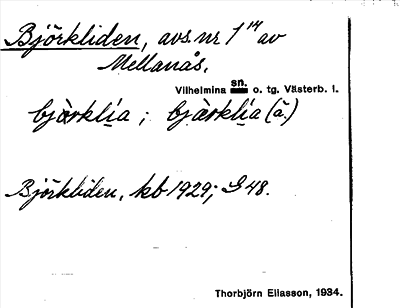 Björkliden, avs. nr 1¹⁴ av
Mellanås.
Vilhelmina sn. o. tg. Västerb. l.
björklia ; bjärklia (ä.)
Björkliden, kb 1929; S 48.
Thorbjörn Eliasson, 1934.